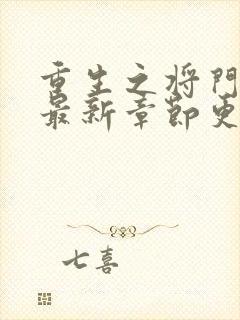 重生之将门
最新章节更
七喜